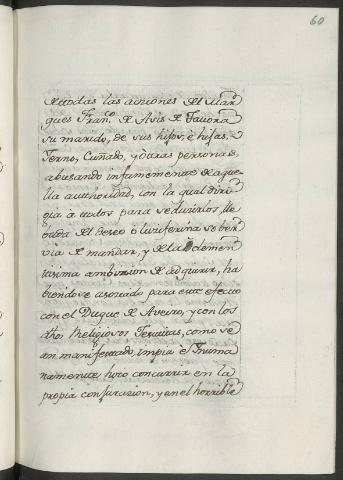 60
de todas las acciones del Mar
ques Fran.co de Asis de Tavora
su marido, de sus hijos, è hijas,
Yerno, Cuñado, y otras personas,
abusando infamemente de aque
lla authoridad, con la qual diri
gia à todos para seducirlos, lle
bada del deseo ò luciferina sober
via de mandar, y de la demen
tisima ambision de adquirir, ha
biendose asonado para este efecto
con el Duque de Aveiro, y con los
dhos Religiosos Jesuitas, como se
an manifestado, impia è Inuma
namente hizo concurrir en la
propia conjuracion, y en el horrible